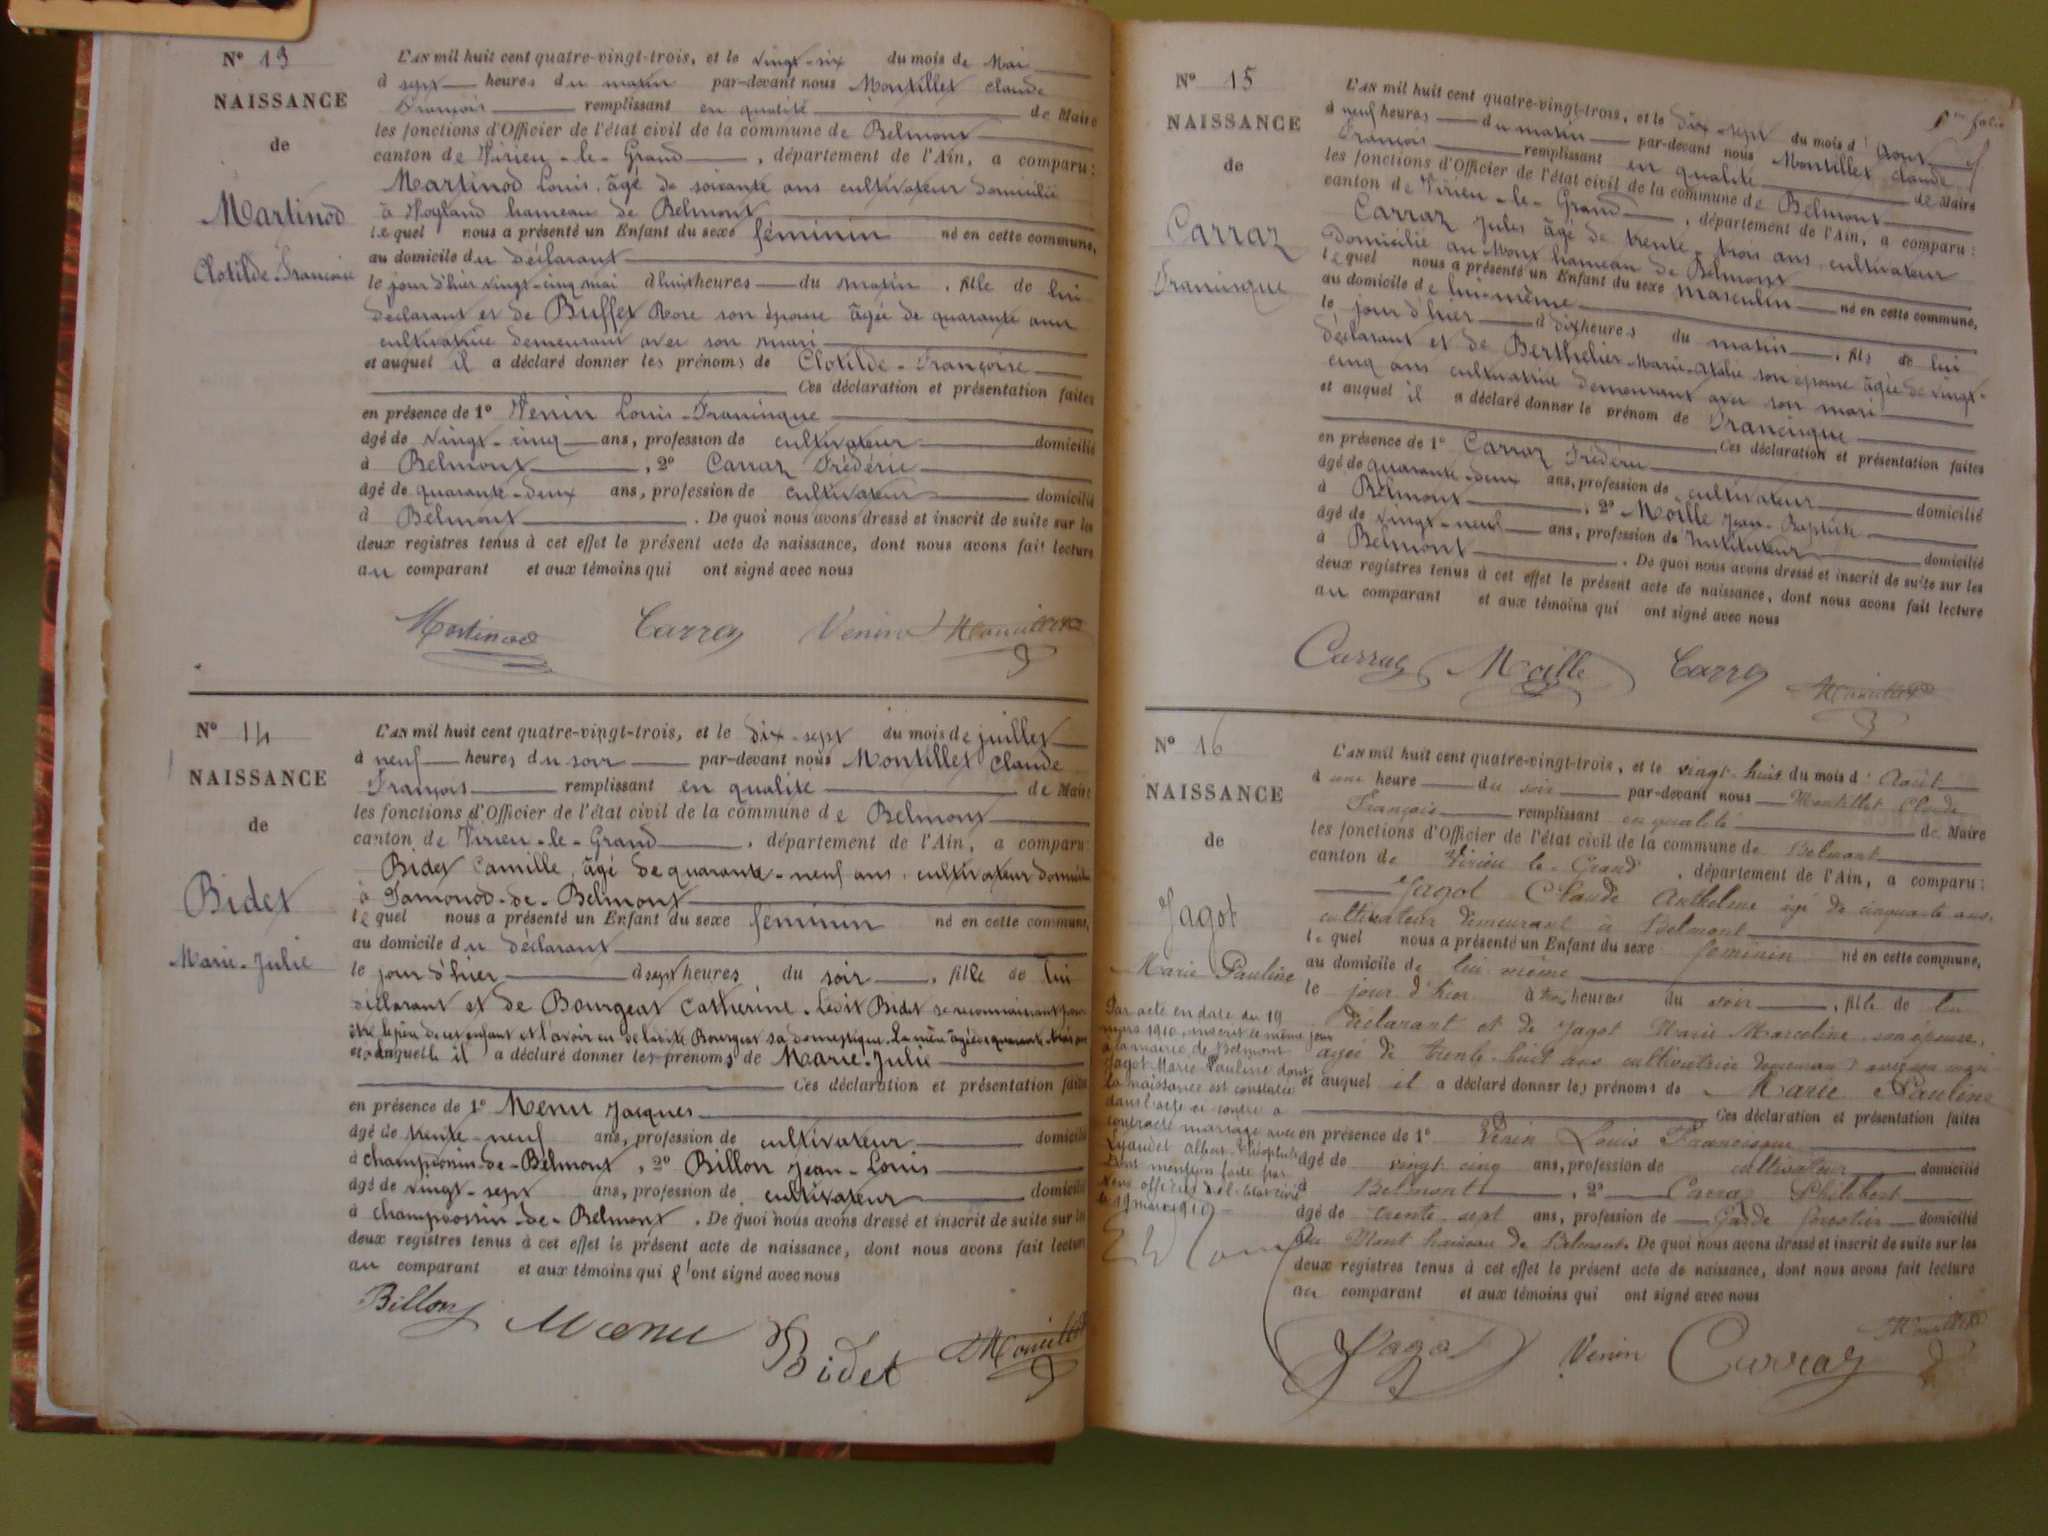 N° 13
NAISSANCE
de
Martinod
Clotilde-Françoise
L'AN mil huit cent quatre-vingt-trois, et le vingt-six du mois de Mai
à sept heures du matin par-devant nous Montillet Claude
François remplissant en qualité de Maire
les fonctions d'Officier de l'état civil de la commune de Belmont
canton de Virieu-le-Grand, département de l'Ain, a comparu:
Martinod Louis, âgé de soixante ans cultivateur domicilié
à hameau de Belmont
lequel nous a présenté un Enfant du sexe féminin né en cette commune,
au domicile du déclarant
le jour d'hier vingt-cinq mai à huit heures du matin, fille de lui
déclarant et de Buffet Rose son épouse âgée de quarante ans
cultivatrice demeurant avec son mari
et auquel il a déclaré donner les prénoms de Clotilde-Françoise
Ces déclaration et présentation faites
en présence de 1° Venin Louis-Francisque
âgé de vingt-cinq ans, profession de cultivateur domicilié
à Belmont, 2° Carraz Frédéric
âgé de quarante-deux ans, profession de cultivateur domicilié
à Belmont. De quoi nous avons dressé et inscrit de suite sur les
deux registres tenus à cet effet le présent acte de naissance, dont nous avons fait lecture
au comparant et aux témoins qui ont signé avec nous
Martinod Carraz Venin Montillet
N° 14
NAISSANCE
de
Bidet
Marie-Julie
L'AN mil huit cent quatre-vingt-trois, et le dix-sept du mois de juillet
à neuf heures du soir par-devant nous Montillet Claude
François remplissant en qualité de Maire
les fonctions d'Officier de l'état civil de la commune de Belmont
canton de Virieu-le-Grand, département de l'Ain, a comparu
Bidet Camille, âgé de quarante-neuf ans, cultivateur domicilié
à -de-Belmont
lequel nous a présenté un Enfant du sexe féminin né en cette commune,
au domicile du déclarant
le jour d'hier à sept heures du soir, fille de lui
déclarant et de Bourgeat Catherine. Ledit Bidet se reconnaissant pour
être le père de cet enfant et l'avoir eu de ladite Bourgeat sa domestique. La mère âgée de quarante trois ans
et à laquelle il a déclaré donner les prénoms de Marie-Julie
Ces déclaration et présentation faites
en présence de 1° Menu Jacques
âgé de trente-neuf ans, profession de cultivateur domicilié
à -de-Belmont, 2° Billon Jean-Louis
âgé de vingt-sept ans, profession de cultivateur domicilié
à -de-Belmont. De quoi nous avons dressé et inscrit de suite sur les
deux registres tenus à cet effet le présent acte de naissance, dont nous avons fait lecture
au comparant et aux témoins qui l'ont signé avec nous
Billon Menu Bidet Montillet
N° 15
NAISSANCE
de
Carraz
Francisque
L'AN mil huit cent quatre-vingt-trois, et le dix-sept du mois d'Août
à neuf heures du matin par-devant nous Montillet Claude
François remplissant en qualité de Maire
les fonctions d'Officier de l'état civil de la commune de Belmont
canton de Virieu-le-Grand, département de l'Ain, a comparu:
Carraz Jules âgé de trente-trois ans, cultivateur
domicilié au Mont hameau de Belmont
lequel nous a présenté un Enfant du sexe masculin né en cette commune,
au domicile de lui-même
le jour d'hier à dix heures du matin, fils de lui
déclarant et de Berthelier Marie son épouse âgée de vingt-
cinq ans cultivatrice demeurant avec son mari
et auquel il a déclaré donner le prénom de Francisque
Ces déclaration et présentation faites
en présence de 1° Carraz Frédéric
âgé de quarante-deux ans, profession de cultivateur domicilié
à Belmont, 2° Moille Jean-Baptiste
âgé de vingt-neuf ans, profession de instituteur domicilié
à Belmont. De quoi nous avons dressé et inscrit de suite sur les
deux registres tenus à cet effet le présent acte de naissance, dont nous avons fait lecture
au comparant et aux témoins qui ont signé avec nous
Carraz Moille Carraz Montillet
N° 16
NAISSANCE
de
Jagot
Marie Pauline
Par acte en date du 19
mars 1910, inscrit le même jour
à la mairie de Belmont
Jagot Marie Pauline dont
la naissance est constatée
dans l'acte ci-contre a
contracté mariage avec
Albert
Dont mention faite par
Nous officier de l'état civil
le 19 mars 1910
L'AN mil huit cent quatre-vingt-trois, et le vingt-huit du mois d'Août
à une heure du soir par-devant nous Montillet Claude
François remplissant en qualité de Maire
les fonctions d'Officier de l'état civil de la commune de Belmont
canton de Virieu le Grand, département de l'Ain, a comparu:
Jagot Claude Anthelme âgé de cinquante ans,
cultivateur demeurant à Belmont
lequel nous a présenté un Enfant du sexe féminin né en cette commune,
au domicile de lui même
le jour d'hier à trois heures du soir, fille de lui
déclarant et de Jagot Marie Marceline, son épouse,
agée de trente-huit ans cultivatrice demeurant avec son mari
et auquel il a déclaré donner les prénoms de Marie Pauline
Ces déclaration et présentation faites
en présence de 1° Venin Louis Francisque
âgé de vingt cinq ans, profession de cultivateur domicilié
à Belmont, 2° Carraz Philibert
âgé de trente-sept ans, profession de Garde forestier domicilié
au Mont hameau de Belmont. De quoi nous avons dressé et inscrit de suite sur les
deux registres tenus à cet effet le présent acte de naissance, dont nous avons fait lecture
au comparant et aux témoins qui ont signé avec nous
Jagot Venin Carraz Montillet